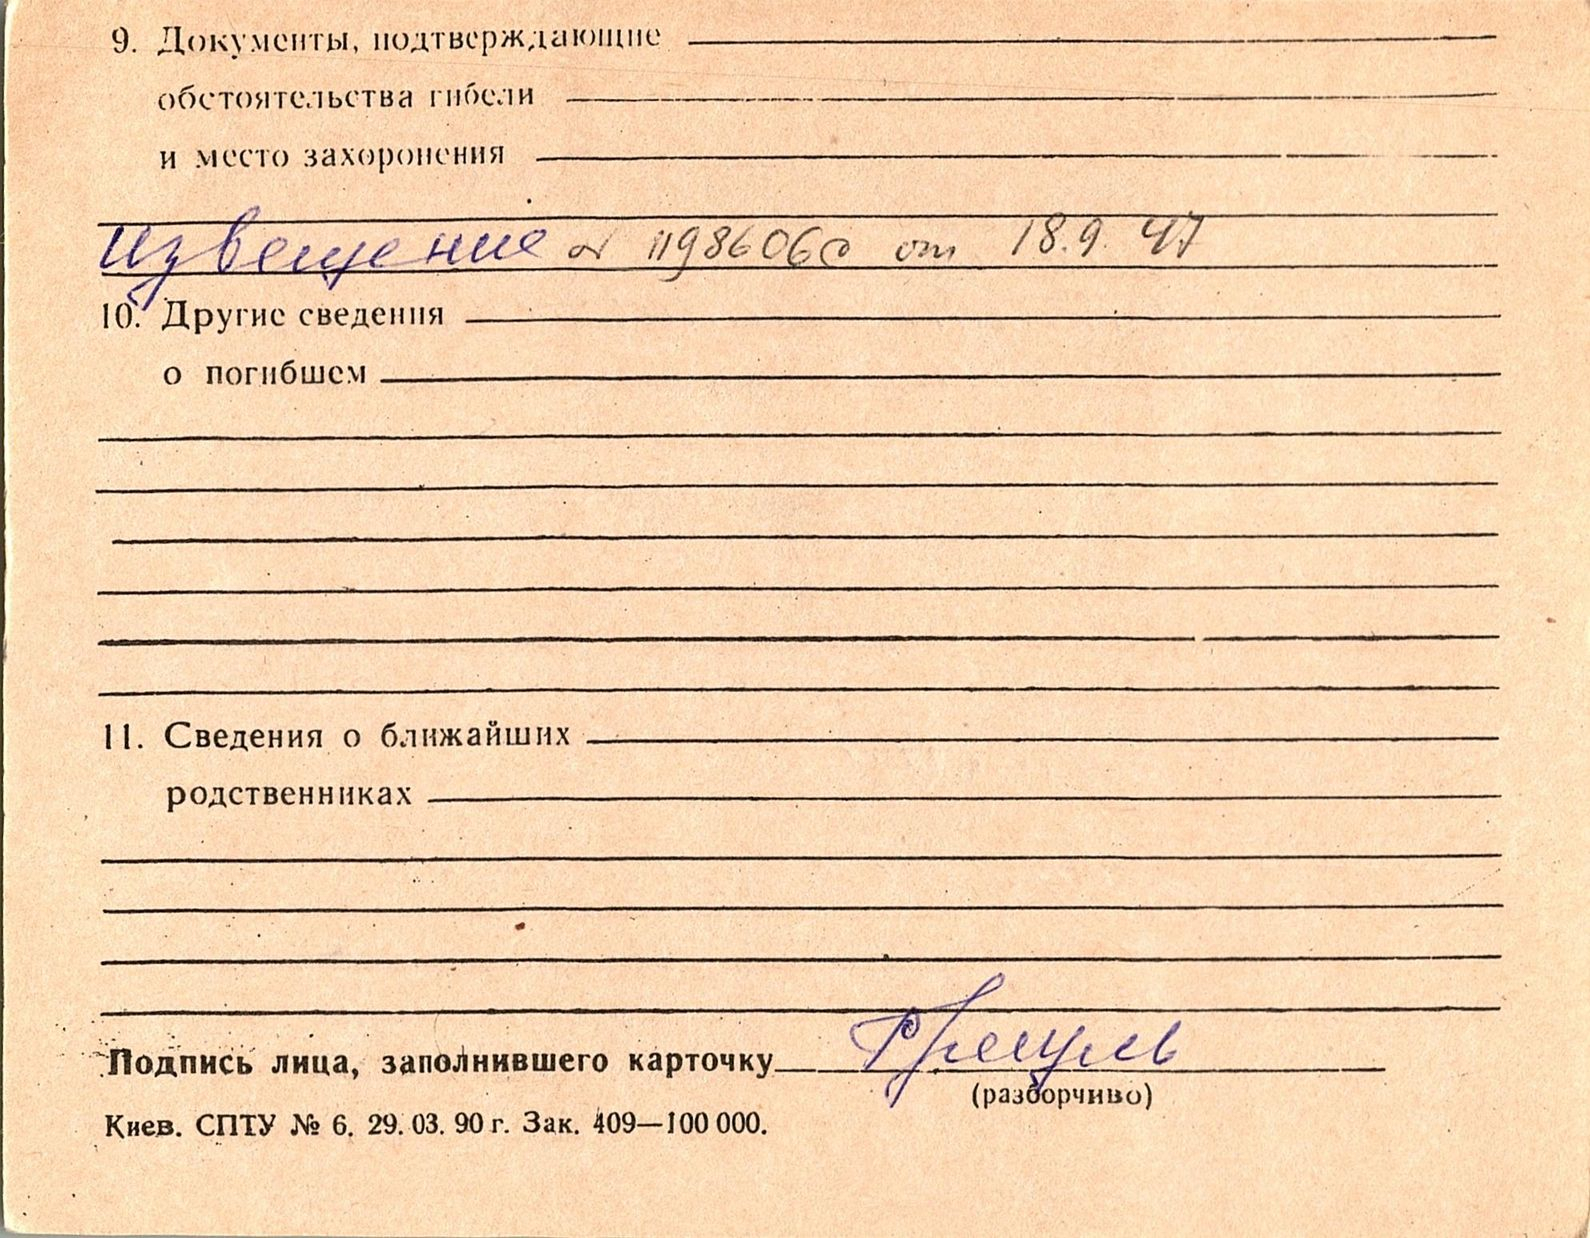 9. Документы, подтверждающие
обстоятельства гибели
и место захоронения
извещение № 1198606с от 18.9.47
10. Другие сведения
о погибшем
11. Сведения о ближайших
родственниках
Подпись лица, заполнившего карточку
(разборчиво)
Киев. СПТУ № 6. 29.03.90 г. Зак. 409—100 000.